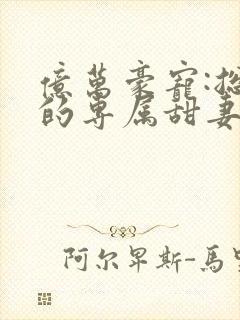 億萬豪寵:
的專属甜妻
阿尔卑斯-馬